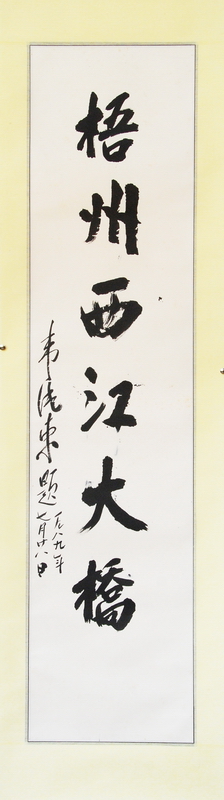 梧州西江大橋
韦纯束题
一九八九年
七月廿八日